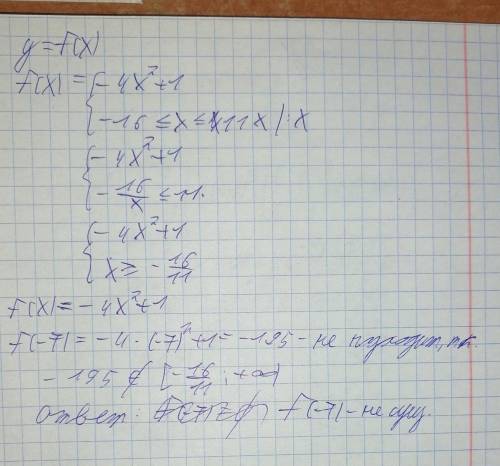 y = f(x)
f(x) = { -4x²+1
{ -16 ≤ x ≤ 11x | :x
{ -4x²+1
{ -16/x ≤ 11.
{ -4x²+1
{ x ≥ -16/11
f(x) = -4x²+1
f(-7) = -4 · (-7)²+1 = -195 - не подходит, т.к.
-195 ∉ [-16/11; +∞)
ответ: f(-7) - не сущ.